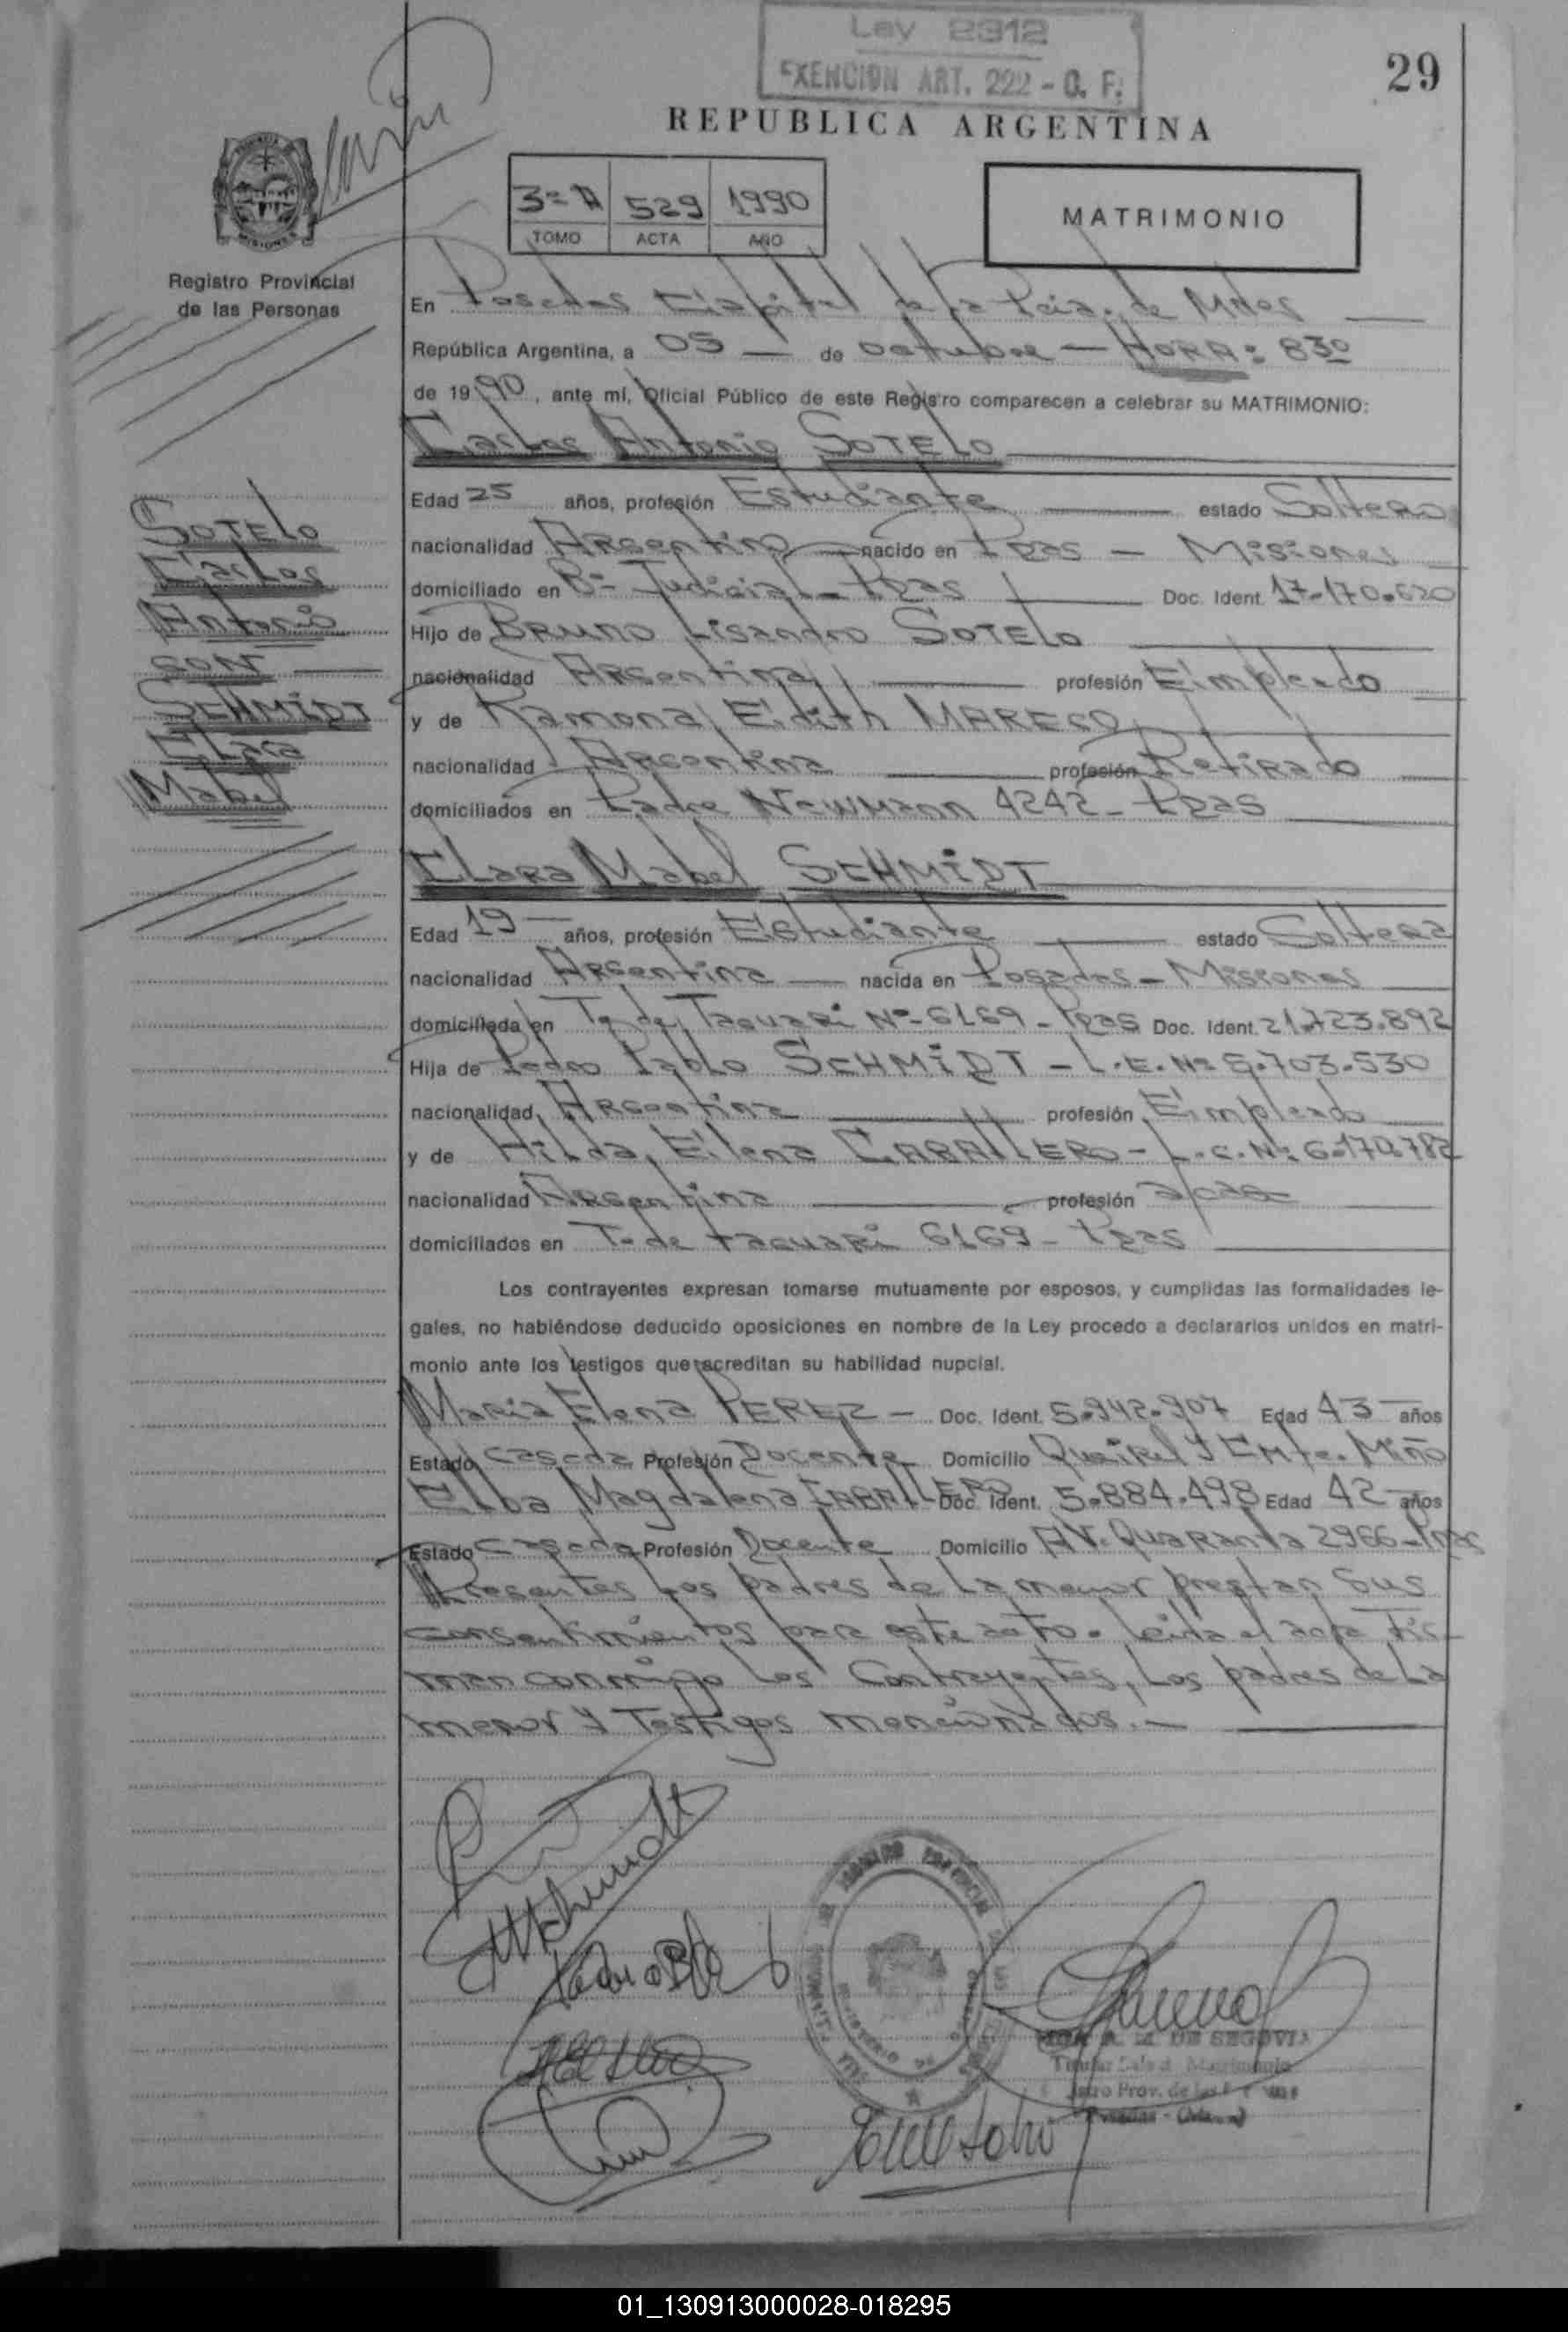 Ley 2312
EXENCION ART. 222 - C. F.
29
REPUBLICA ARGENTINA
3º A 529 1990
TOMO ACTA AÑO
MATRIMONIO
Registro Provincial
de las Personas
En Posadas Capital de la Pcia. de Mnes
República Argentina, a 05 de octubre - HORA: 8 30
de 1990, ante mí, Oficial Público de este Registro comparecen a celebrar su MATRIMONIO:
Carlos Antonio SOTELO
Edad 25 años, profesión Estudiante estado Soltero
nacionalidad Argentino nacido en Pdas - Misiones
domiciliado en Bº Judicial - Pdas Doc. Ident. 17.170.620
Hijo de Bruno Lisandro SOTELO
nacionalidad Argentina profesión Empleado
y de Ramona Edith MARECO
nacionalidad Argentina profesión Retirado
domiciliados en Padre Newmann 4242 - Pdas
SOTELO
Carlos
Antonio
CON
SCHMIDT
Clara
Mabel
Clara Mabel SCHMIDT
Edad 19 años, profesión Estudiante estado Soltera
nacionalidad Argentina nacida en Posadas - Misiones
domiciliada en Tº de Tacuari Nº 6169 - Pdas Doc. Ident. 21.723.892
Hija de Pedro Pablo SCHMIDT - L.E. Nº 5.703.530
nacionalidad Argentina profesión Empleado
y de Hilda Elena CABALLERO - L.C. Nº 6.170.782
nacionalidad Argentina profesión
domiciliados en T. de Tacuari 6169 - Pdas
Los contrayentes expresan tomarse mutuamente por esposos, y cumplidas las formalidades le-
gales, no habiéndose deducido oposiciones en nombre de la Ley procedo a declararlos unidos en matri-
monio ante los testigos que acreditan su habilidad nupcial.
Maria Elena PEREZ - Doc. Ident. 5.942.907 Edad 43 años
Estado casada Profesión Docente Domicilio y Ente. Miño
Elba Magdalena CABALLERO Doc. Ident. 5.884.498 Edad 42 años
Estado casada Profesión Docente Domicilio AV. Quaranta 2966 - Pdas
Presentes los padres de la menor prestan sus
consentimientos para este acto. Leida el acta fir-
man conmigo los Contrayentes, los padres de la
menor y Testigos mencionados.-
DE SEGOVIA
Titular Sala d. Matrimonio
Prov. de las
01_130913000028-018295